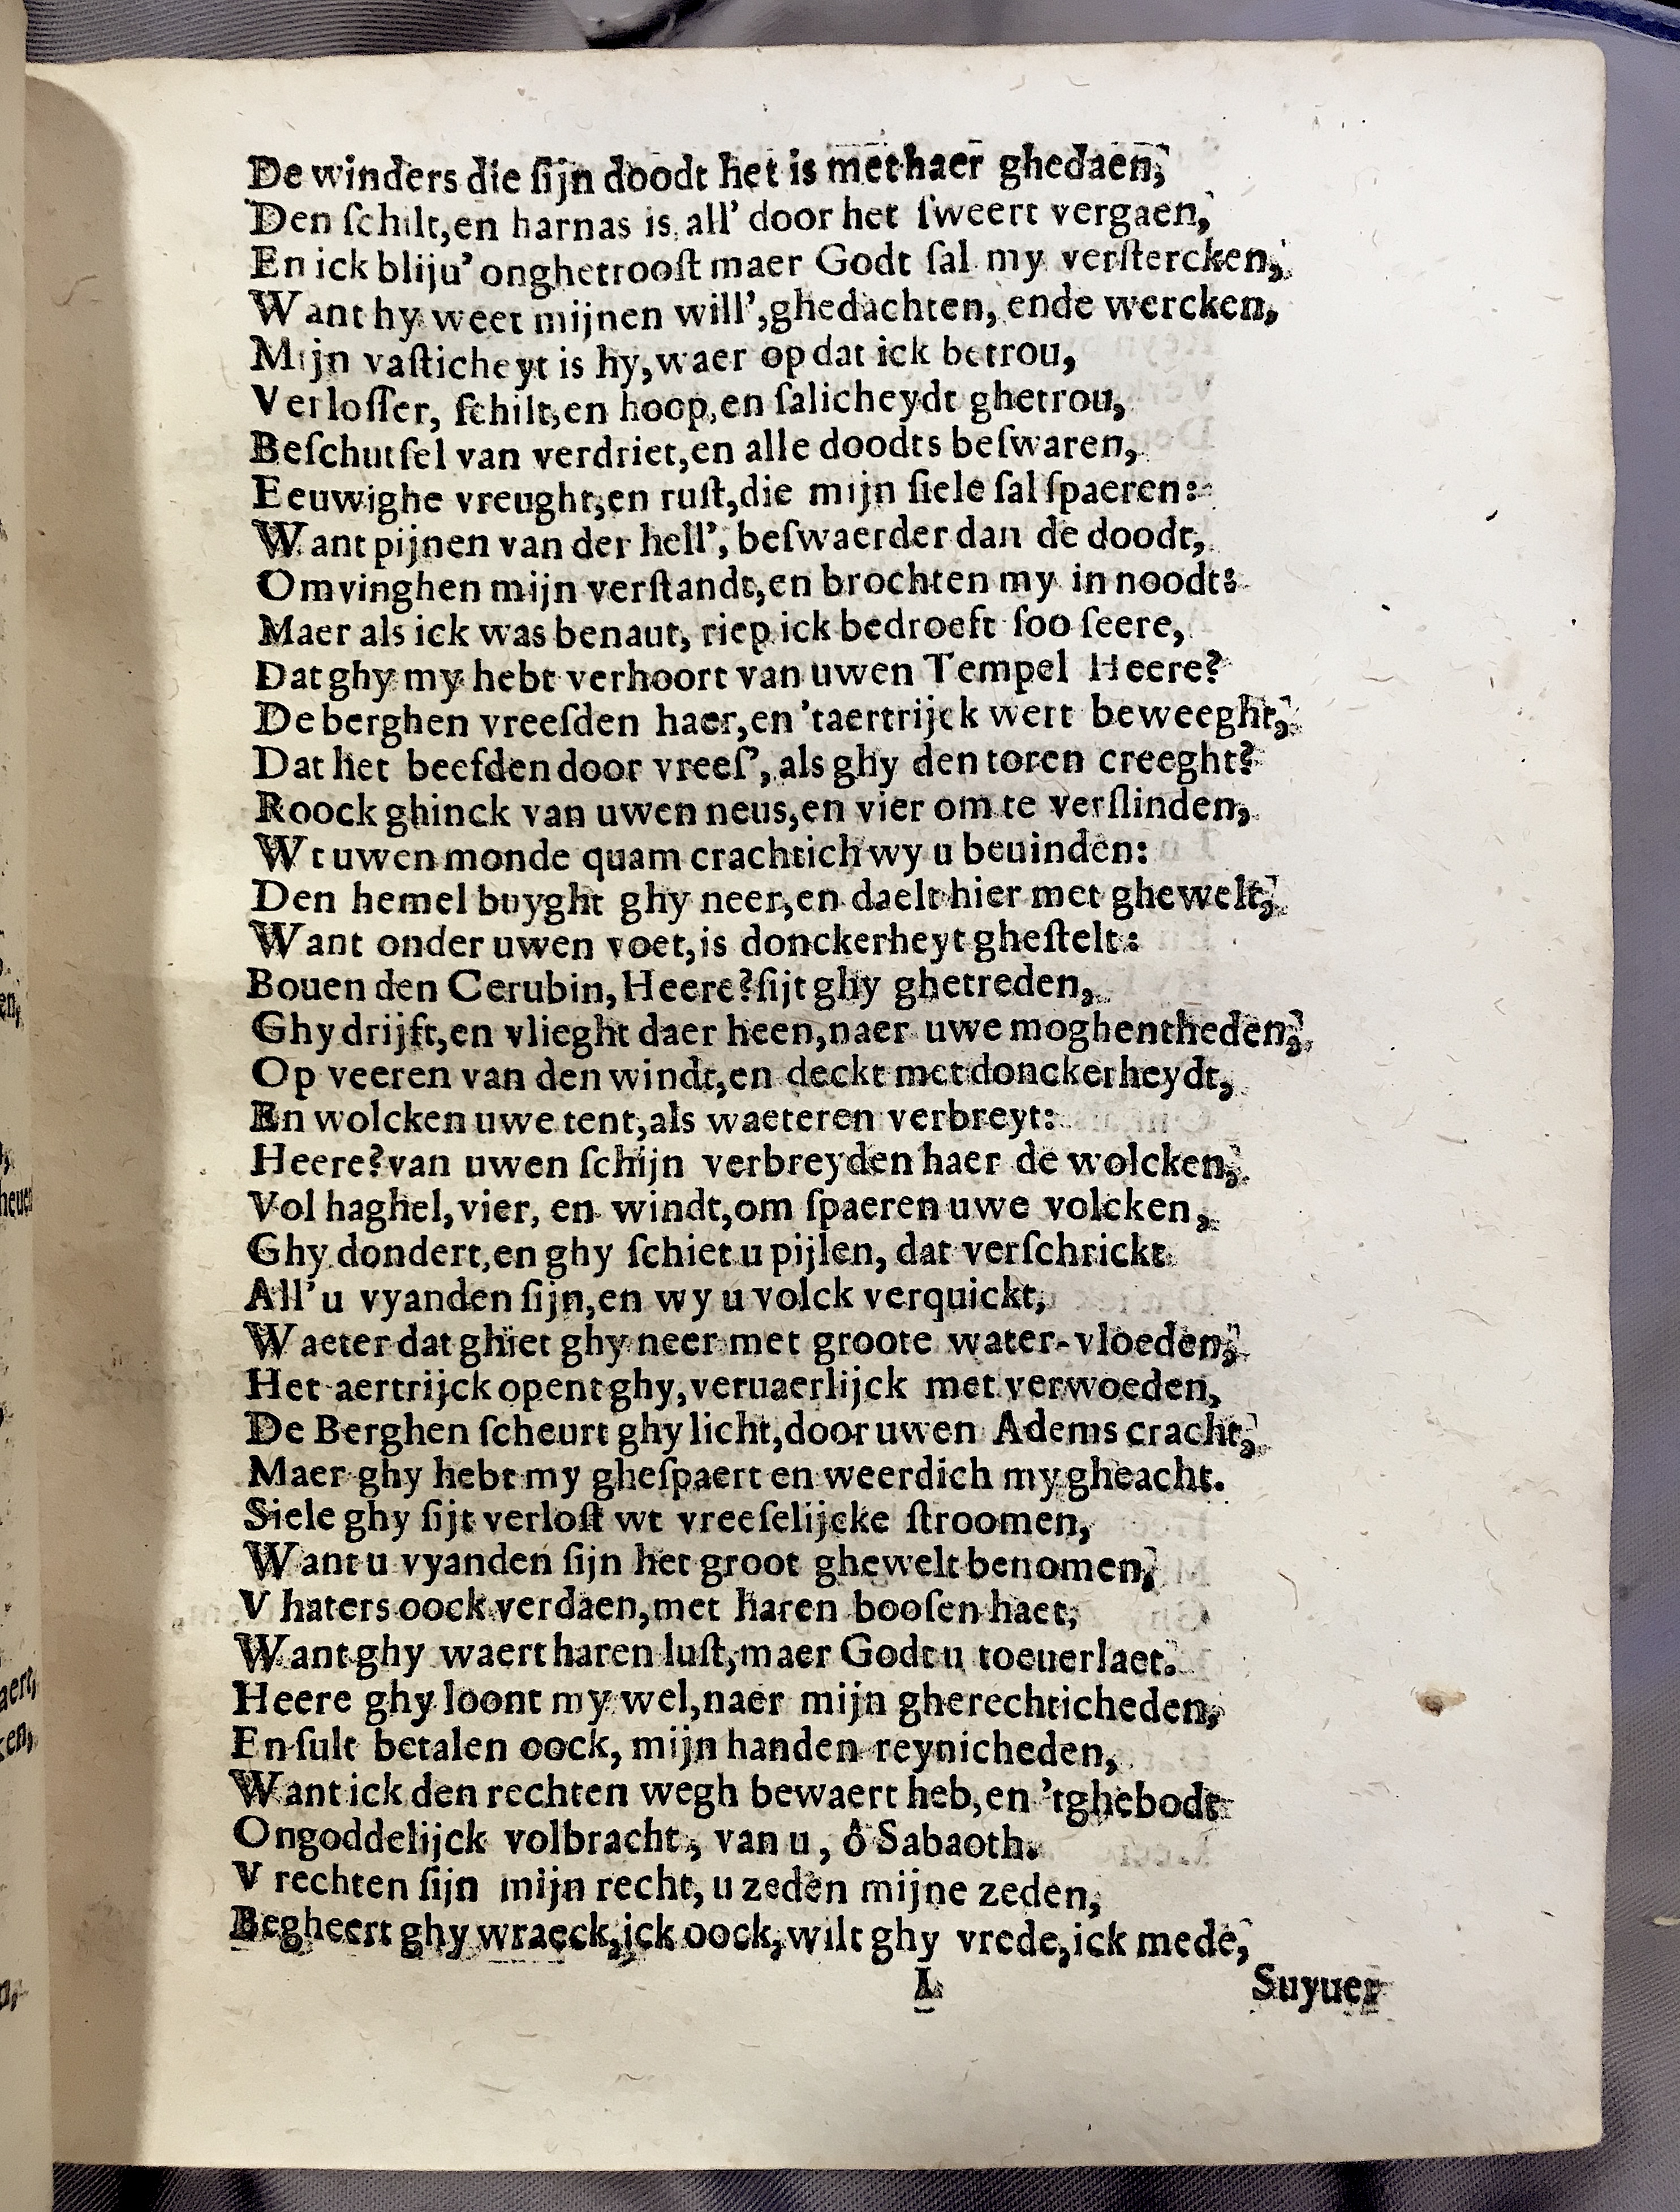 De winders die ſijn doodt het is met haer ghedaen,
Den ſchilt, en harnas is all' door het ſweert vergaen,
En ick bliju' onghetrooſt maer Godt ſal my verſtercken,
Want hy weet mijnen will', ghedachten, ende wercken,
Mijn vaſticheyt is hy, waer op dat ick betrou,
Verloſſer, ſchilt, en hoop, en ſalicheydt ghetrou,
Beſchutſel van verdriet, en alle doodts beſwaren,
Eeuwighe vreught, en ruſt, die mijn ſiele ſal ſpaeren:
Want pijnen van der hell', beſwaerder dan de doodt,
Omvinghen mijn verſtandt, en brochten my in noodt:
Maer als ick was benaut, riep ick bedroeft ſoo ſeere,
Dat ghy my hebt verhoort van uwen Tempel Heere?
De berghen vreeſden haer, en 'taertrijck wert beweeght,
Dat het beefden door vreeſ', als ghy den toren creeght?
Roock ghinck van uwen neus, en vier om te verſlinden,
Wt uwen monde quam crachtich wy u beuinden:
Den hemel buyght ghy neer, en daelt hier met ghewelt,
Want onder uwen voet, is donckerheyt gheſtelt:
Bouen den Cerubin, Heere? ſijt ghy ghetreden,
Ghy drijft, en vlieght daer heen, naer uwe moghentheden,
Op veeren van den windt, en deckt met donckerheydt,
En wolcken uwe tent, als waeteren verbreyt:
Heere? van uwen ſchijn verbreyden haer de wolcken,
Vol haghel, vier, en windt, om ſpaeren uwe volcken,
Ghy dondert, en ghy ſchiet u pijlen, dat verſchrickt
All' u vyanden ſijn, en wy u volck verquickt,
Waeter dat ghiet ghy neer met groote water-vloeden,
Het aertrijck opent ghy, veruaerlijck met verwoeden,
De Berghen ſcheurt ghy licht, door uwen Adems cracht,
Maer ghy hebt my gheſpaert en weerdich my gheacht.
Siele ghy ſijt verloſt wt vreeſelijcke ſtroomen,
Want u vyanden ſijn het groot ghewelt benomen,
V haters oock verdaen, met haren booſen haet,
Want ghy waert haren luſt, maer Godt u toeuerlaet.
Heere ghy loont my wel, naer mijn gherechticheden,
En ſult betalen oock, mijn handen reynicheden,
Want ick den rechten wegh bewaert heb, en 'tghebodt
Ongoddelijck volbracht, van u, ô Sabaoth.
V rechten ſijn mijn recht, u zeden mijne zeden,
Begheert ghy wraeck, ick oock, wilt ghy vrede, ick mede,
L Suyuer